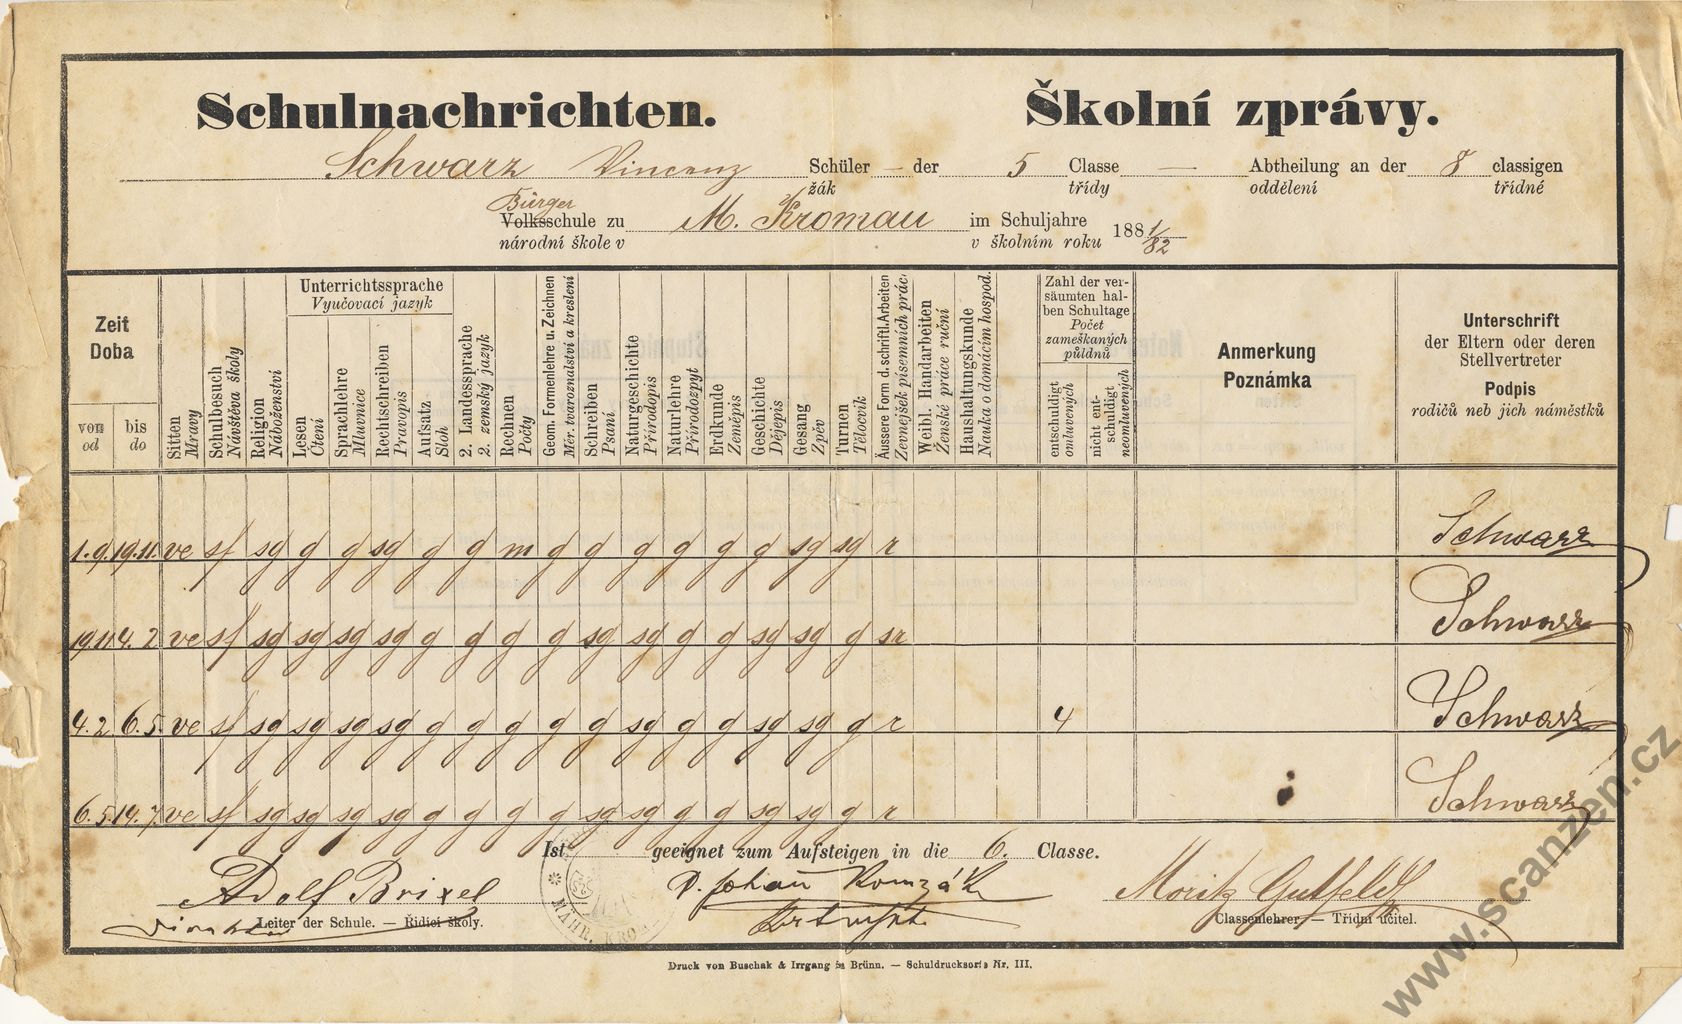 Schulnachrichten. Školní zprávy.
Schwarz Vincenz Schüler — der 5 Classe — Abtheilung an der 8 classigen
žák třídy oddělení třídné
Bürger
Volksschule zu M. Kromau im Schuljahre 1881/82
národní škole v v školním roku
Zeit
Doba
von
od
bis
do
Sitten
Mravy
Schulbesuch
Návštěva školy
Religion
Náboženství
Unterrichtssprache
Vyučovací jazyk
Lesen
Čtení
Sprachlehre
Mluvnice
Rechtschreiben
Pravopis
Aufsatz
Sloh
2. Landessprache
2. zemský jazyk
Rechnen
Počty
Geom. Formenlehre u. Zeichnen
Měr. tvaroznalství a kreslení
Schreiben
Psaní
Naturgeschichte
Přírodopis
Naturlehre
Přírodozpyt
Erdkunde
Zeměpis
Geschichte
Dějepis
Gesang
Zpěv
Turnen
Tělocvik
Äussere Form d. schriftl. Arbeiten
Zevnějšek písemních prác
Weibl. Handarbeiten
Ženské práce ruční
Haushaltungskunde
Nauka o domácím hospod.
Zahl der ver-
säumten hal-
ben Schultage
Počet
zameškaných
půldnů
entschuldigt
omluvených
nicht ent-
schuldigt
neomluvených
Anmerkung
Poznámka
Unterschrift
der Eltern oder deren
Stellvertreter
Podpis
rodičů neb jich náměstků
1. 9. 19. 11. ve sf sg g g sg g g m g g g g g g sg sg r Schwarz
19. 11. 4. 2 ve sf sg sg sg sg g g g g sg sg g g sg sg g sr Schwarz
4. 2 6. 5. ve sf sg sg sg sg g g g g g sg g g sg sg g r 4 Schwarz
6. 5. 14. 7. ve sf sg sg sg sg g g g g sg sg g g sg sg g r Schwarz
Ist geeignet zum Aufsteigen in die 6. Classe.
Adolf Brixel P. Johann Komzák Moritz Gutfeld
Leiter der Schule. — Řídící školy. Classenlehrer — Třídní učitel.
MÄHR. KRO
Druck von Buschak & Irrgang in Brünn. — Schuldrucksorte Nr. III.
www.scanzen.cz